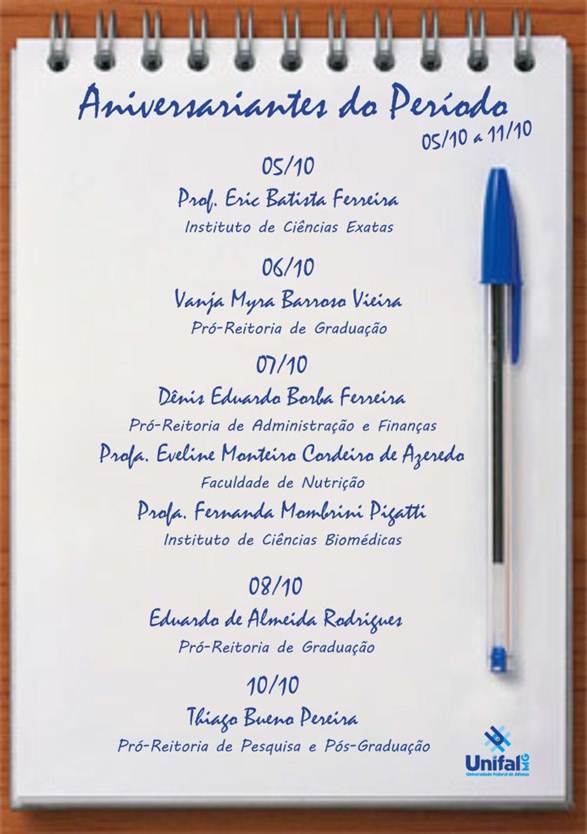 Aniversariantes do Período
05/10 a 11/10
05/10
Prof. Eric Batista Ferreira
Instituto de Ciências Exatas
06/10
Vanja Myra Barroso Vieira
Pró-Reitoria de Graduação
07/10
Dênis Eduardo Borba Ferreira
Pró-Reitoria de Administração e Finanças
Profa. Eveline Monteiro Cordeiro de Azeredo
Faculdade de Nutrição
Profa. Fernanda Mombrini Pigatti
Instituto de Ciências Biomédicas
08/10
Eduardo de Almeida Rodrigues
Pró-Reitoria de Graduação
10/10
Thiago Bueno Pereira
Pró-Reitoria de Pesquisa e Pós-Graduação
Unifal MG
Universidade Federal de Alfenas